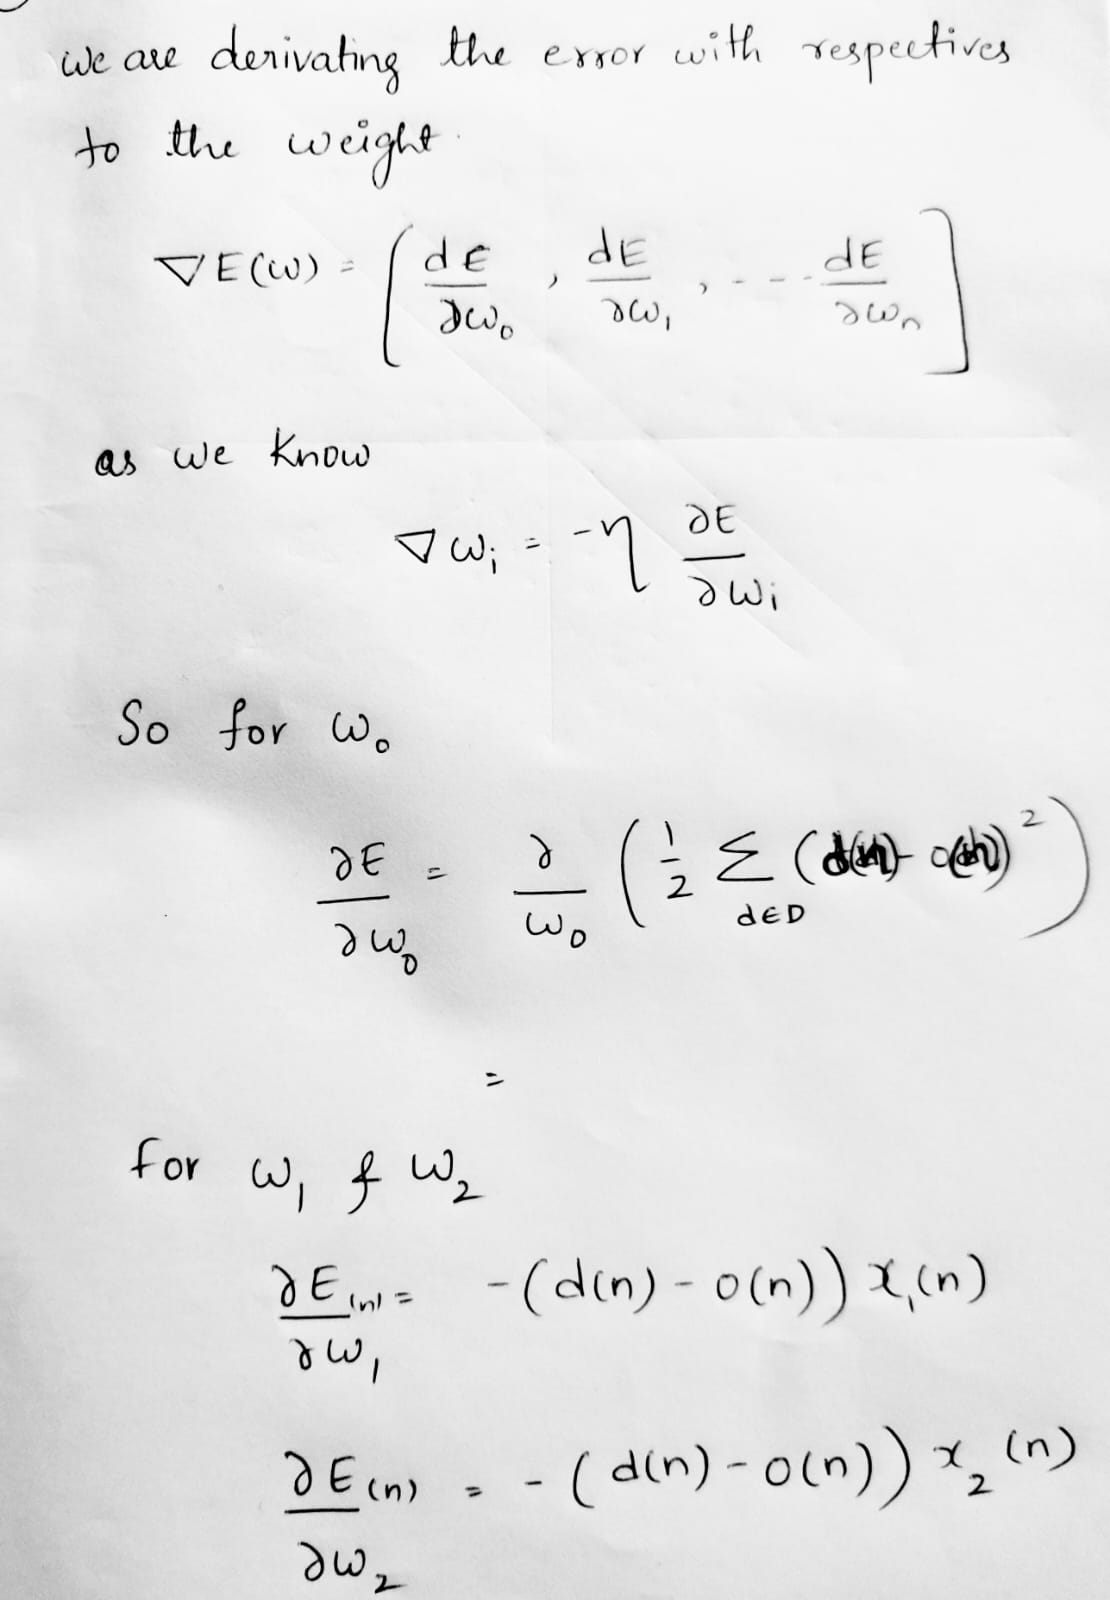 we are derivating the error with respectives
to the weight.
∇E(w) = [dE/∂w₀, dE/∂w₁, - - - dE/∂wₙ]
as we know
∇wᵢ = -η ∂E/∂wᵢ
So for w₀
∂E/∂w₀ = ∂/w₀ (1/2 Σ d∈D (d(n) - o(n))²)
=
for w₁ & w₂
∂E(n)/∂w₁ = -(d(n) - o(n)) x₁(n)
∂E(n)/∂w₂ = -(d(n) - o(n)) x₂(n)